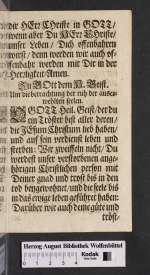 dir HErr Christe in GOTT/
wenn aber Du HErr Christe/
unser Leben / Dich offenbahren
wirst/ denn werden wir auch of-
fenbahr werden mit Dir in der
Herrligkeit Amen.
Zu Gott dem H. Geist.
Um die betrachtung der ruh der auser-
wehlten seelen.
O GOTT Heil. Geist/ der du
ein Tröster bist aller deren/
die JEsum Christum lieb haben/
und auf sein verdienst leben und
sterben. Wir zweiffeln nicht/ Du
werdest unser verstorbenen ange-
hörigen Christlichen person mit
Deiner gnad und trost bis in den
tod beygewohnet/ und die seele bis
in das ewige leben geführet haben:
Darüber wir auch deine güte und
tröst-
Herzog August Bibliothek Wolfenbüttel
Kodak